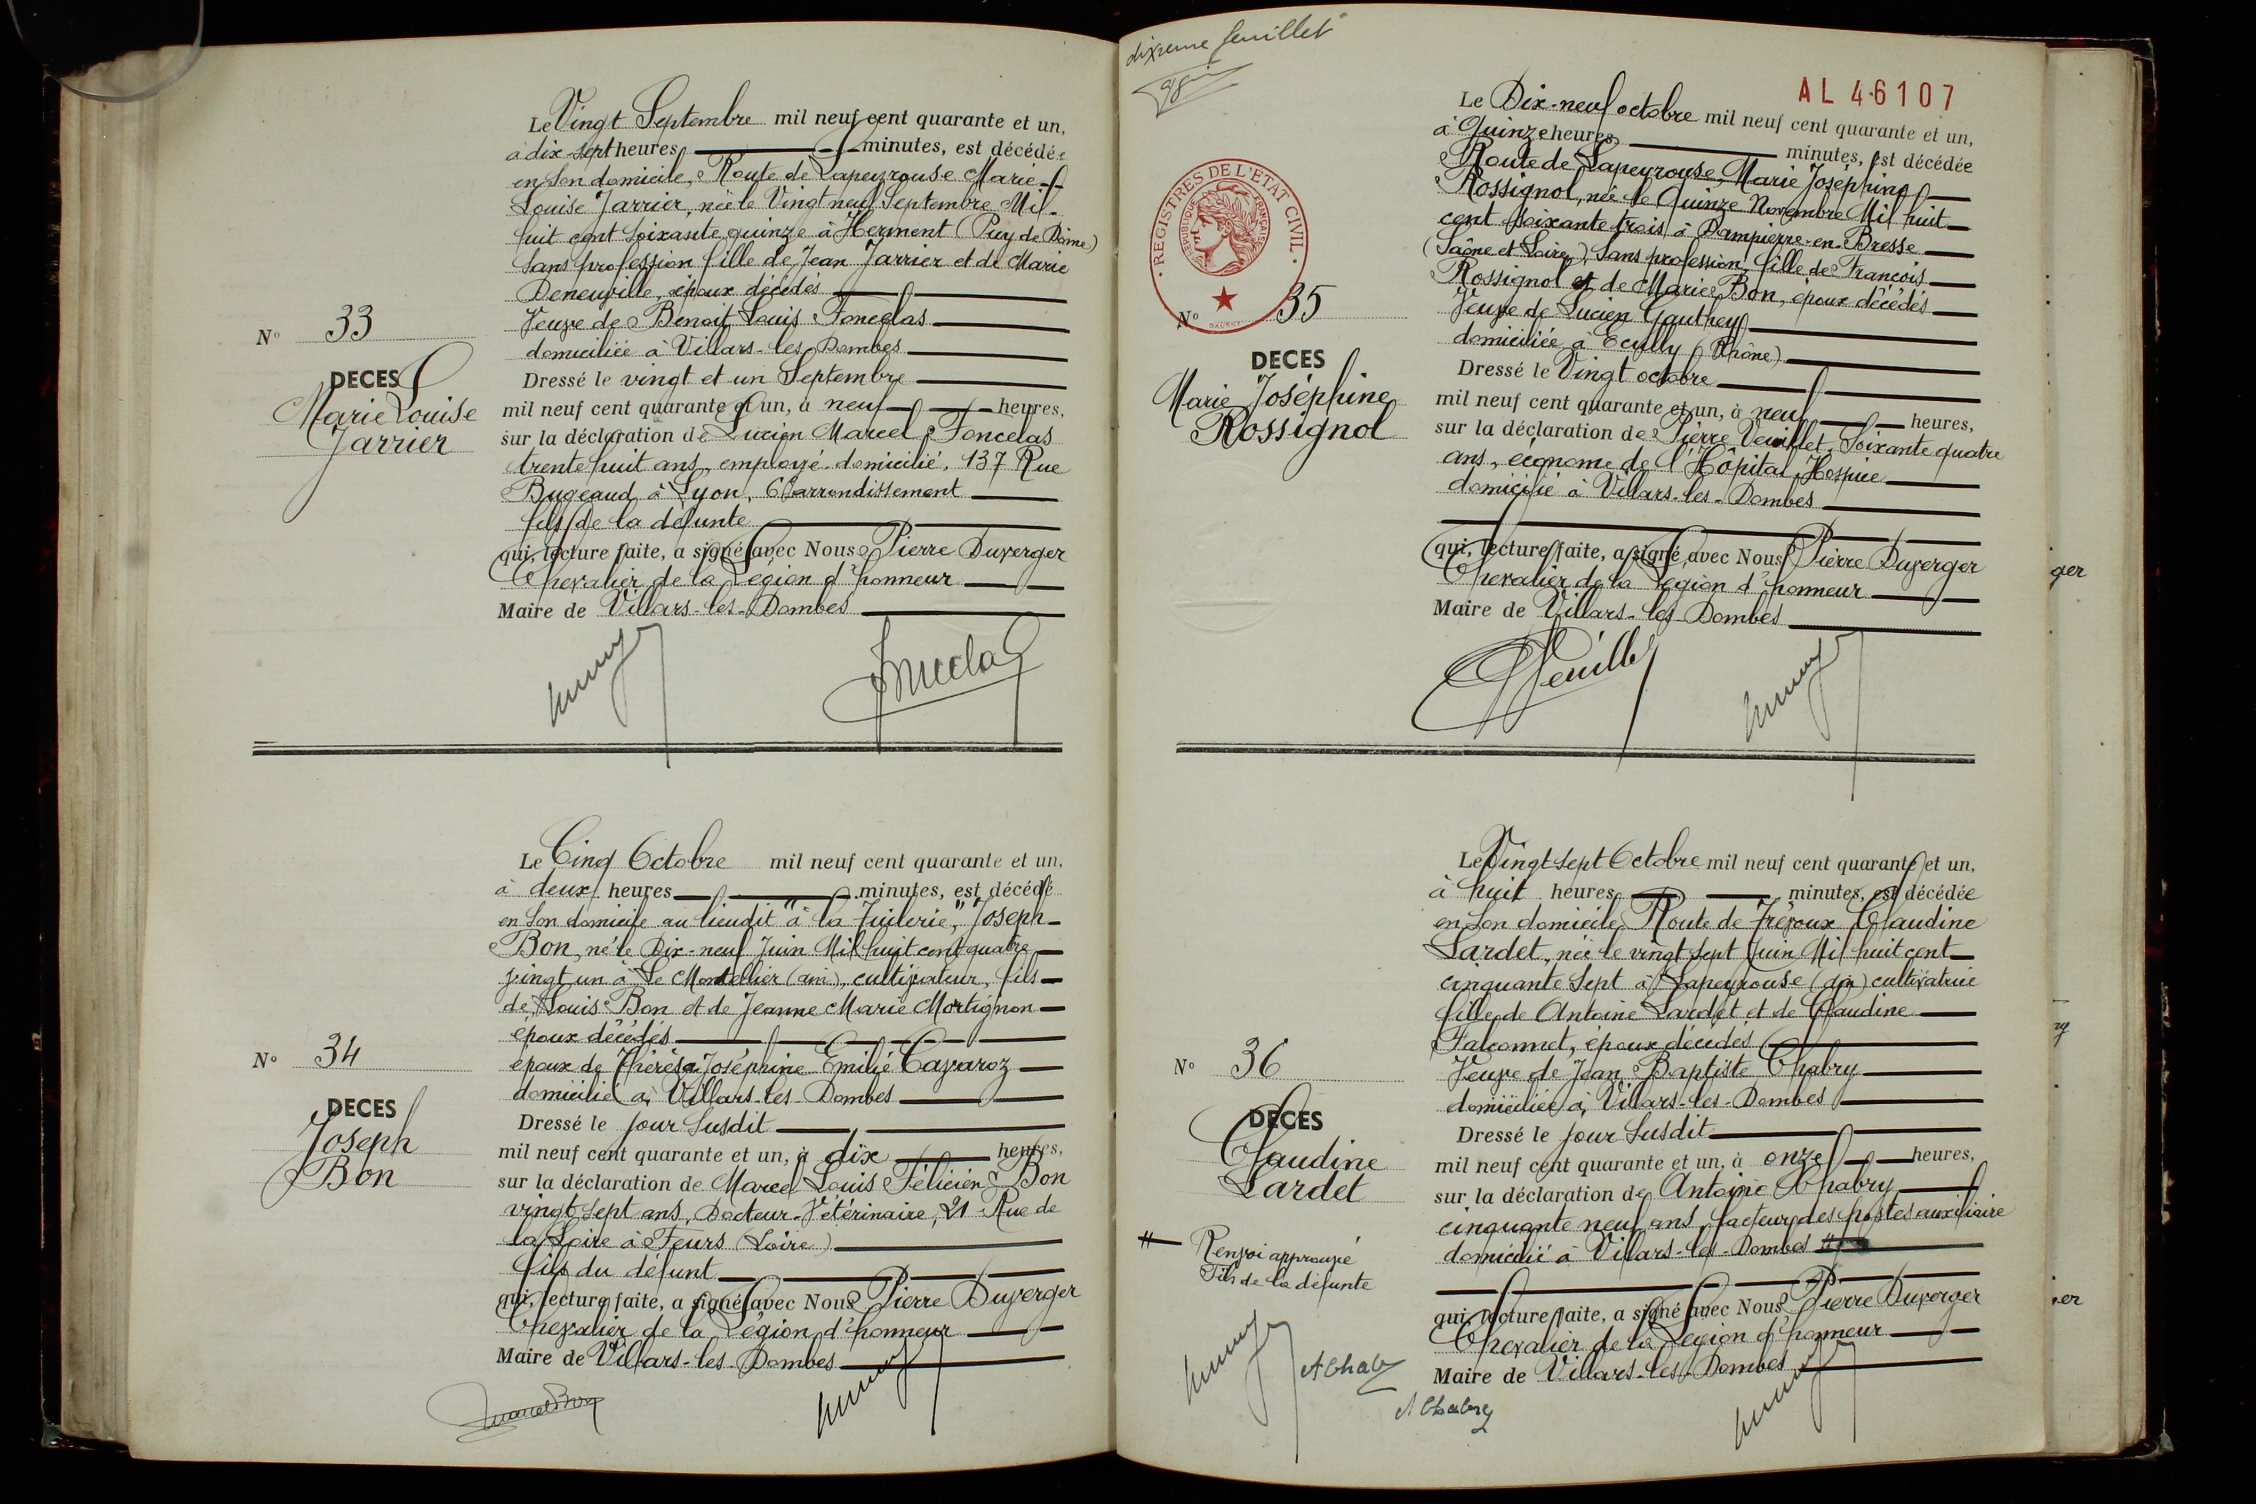 Le Vingt Septembre mil neuf cent quarante et un,
à dix-sept heures minutes, est décédée
en son domicile, Route de Lapeyrouse Marie
Louise Jarrier, née le Vingt neuf Septembre Mil-
huit cent soixante quinze à Herment (Puy de Dôme)
sans profession fille de Jean Jarrier et de Marie
Deneuville, époux décédés
Veuve de Benoit Louis Foncelas
domiciliée à Villars-les-Dombes
Dressé le vingt et un Septembre
mil neuf cent quarante et un, à neuf heures,
sur la déclaration de Lucien Marcel Foncelas
trente huit ans, employé domicilié, 137 Rue
Bugeaud à Lyon, 6e arrondissement
fils de la défunte
qui, lecture faite, a signé avec Nous Pierre Duverger
Chevalier de la Légion d'honneur
Maire de Villars-les-Dombes
No 33
DECES
Marie Louise
Jarrier
Foncelas
Le Cinq Octobre mil neuf cent quarante et un,
à deux heures minutes, est décédé
en son domicile au lieudit "à la Tuilerie", Joseph-
Bon, né le Dix-neuf Juin Mil huit cent quatre
vingt un à Le Montellier (Ain), cultivateur, fils
de Louis Bon et de Jeanne Marie Mortignon
époux décédés
époux de Thérèsa Joséphine Emilie Cavaroz
domicilié à Villars-les-Dombes
Dressé le jour susdit
mil neuf cent quarante et un, à dix heures,
sur la déclaration de Marcel Louis Félicien Bon
vingt sept ans, Docteur-Vétérinaire, 21 Rue de
la Loire à Feurs (Loire)
fils du défunt
qui, lecture faite, a signé avec Nous Pierre Duverger
Chevalier de la Légion d'honneur
Maire de Villars-les-Dombes
No 34
DECES
Joseph
Bon
Marcel Bon
dixieme feuillet
AL 46107
REGISTRES DE L'ETAT CIVIL
REPUBLIQUE FRANÇAISE
Le Dix-neuf octobre mil neuf cent quarante et un,
à Quinze heures minutes, est décédée
Route de Lapeyrouse, Marie Joséphine
Rossignol, née le Quinze Novembre Mil huit
cent soixante trois à Dampierre-en-Bresse
(Saône et Loire), sans profession, fille de François
Rossignol et de Marie Bon, époux décédés
Veuve de Lucien Gauthey
domiciliée à Ecully (Rhône)
Dressé le Vingt octobre
mil neuf cent quarante et un, à neuf heures,
sur la déclaration de Pierre Veuillet, Soixante quatre
ans, économe de l'Hôpital Hospice
domicilié à Villars-les-Dombes
qui, lecture faite, a signé avec Nous Pierre Duverger
Chevalier de la Légion d'honneur
Maire de Villars-les-Dombes
No 35
DECES
Marie Joséphine
Rossignol
Le Vingt sept Octobre mil neuf cent quarante et un,
à huit heures minutes, est décédée
en son domicile, Route de Trévoux Claudine
Lardet, née le vingt sept Juin Mil huit cent
cinquante sept à Lapeyrouse (Ain) cultivatrice
fille de Antoine Lardet et de Claudine
Falconnet, époux décédés
Veuve de Jean Baptiste Chabry
domiciliée à Villars-les-Dombes
Dressé le jour susdit
mil neuf cent quarante et un, à onze heures,
sur la déclaration de Antoine Chabry
cinquante neuf ans, facteur des postes auxiliaire
domicilié à Villars-les-Dombes #
qui, lecture faite, a signé avec Nous Pierre Duverger
Chevalier de la Légion d'honneur
Maire de Villars-les-Dombes
No 36
DECES
Claudine
Lardet
# Renvoi approuvé
Fils de la défunte
A Chab
A Chabry
ger
er